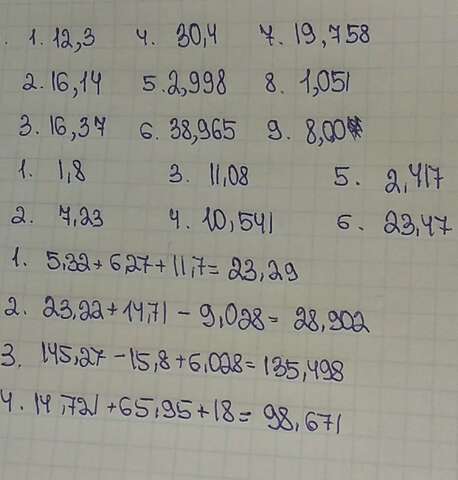 1. 12,3 4. 30,4 7. 19,758
2. 16,14 5. 2,998 8. 1,051
3. 16,37 6. 38,965 9. 8,00
1. 1,8 3. 11,08 5. 2,417
2. 7,23 4. 10,541 6. 23,47
1. 5,32 + 6,27 + 11,7 = 23,29
2. 23,22 + 14,71 - 9,028 = 28,902
3. 145,27 - 15,8 + 6,028 = 135,498
4. 14,721 + 65,95 + 18 = 98,671